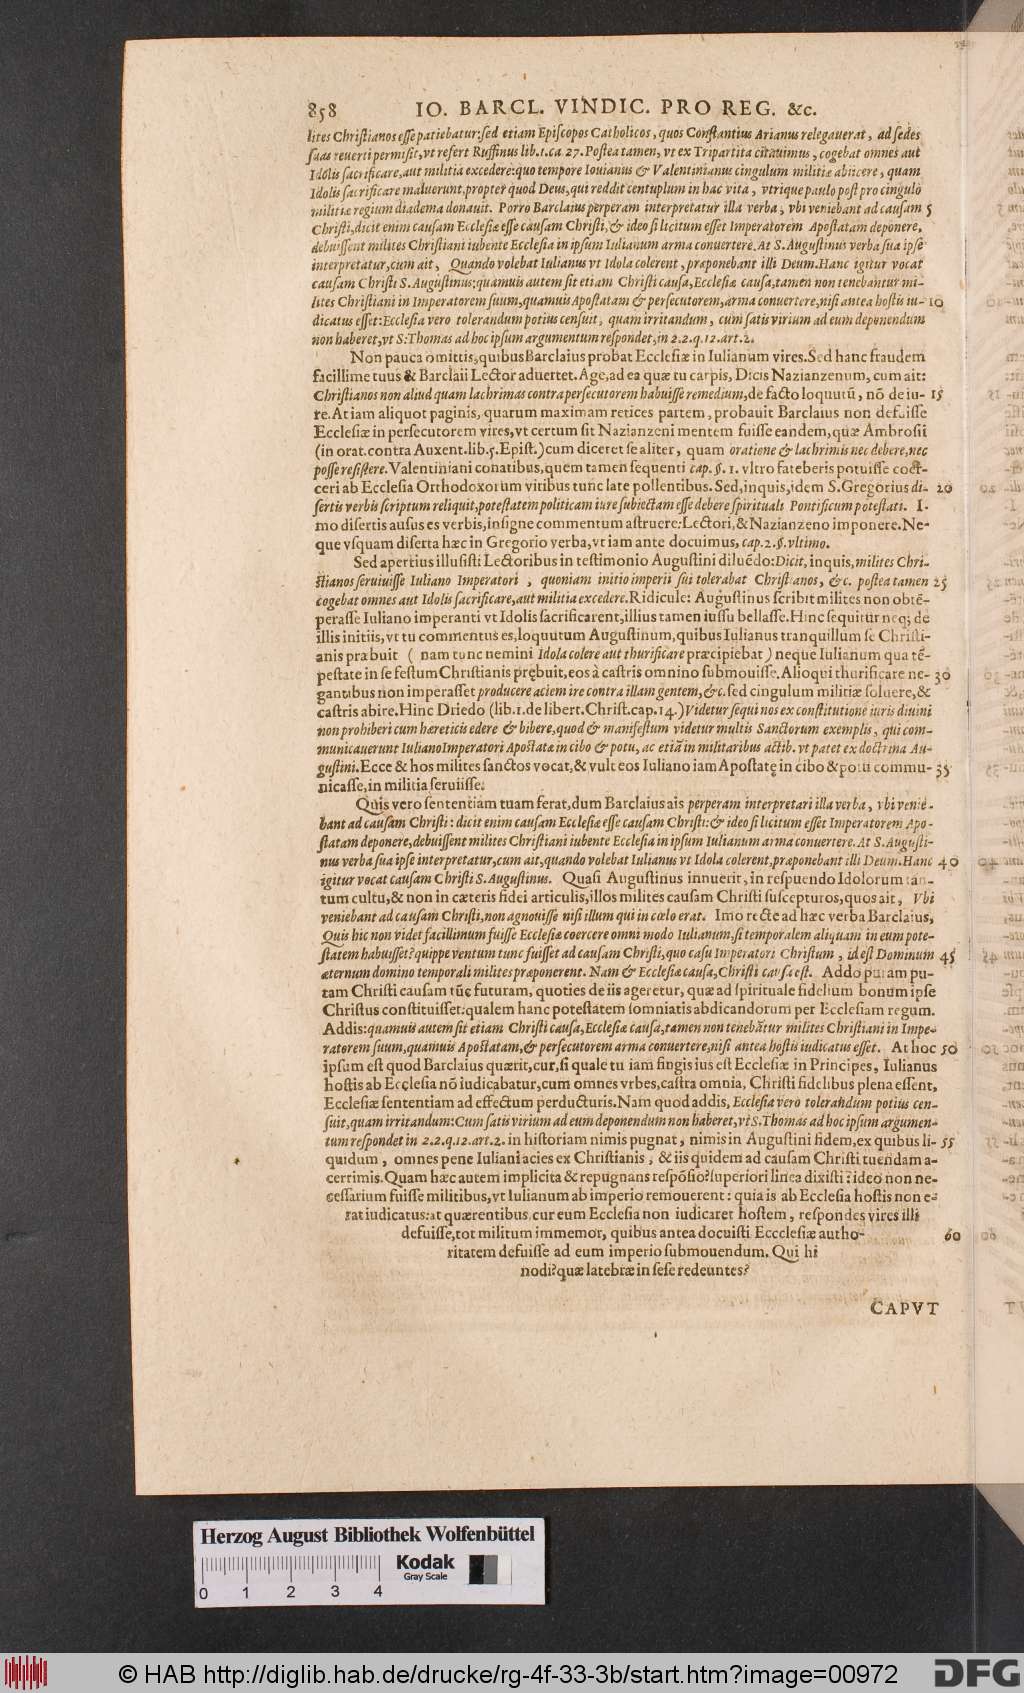 858 IO. BARCL. VINDIC. PRO REG. &c.
lites Christianos esse patiebatur: sed etiam Episcopos Catholicos, quos Constantius Arianus relegauerat, ad sedes
suas reuerti permisit, vt refert Ruffinus lib. 1. ca. 27. Postea tamen, vt ex Tripartita citauimus, cogebat omnes aut
Idolis sacrificare, aut militia excedere: quo tempore Iouianus & Valentinianus cingulum militiæ abiicere, quam
Idolis sacrificare maluerunt, propter quod Deus, qui reddit centuplum in hac vita, vtrique paulo post pro cingulo
militiæ regium diadema donauit. Porro Barclaius perperam interpretatur illa verba, vbi veniebant ad causam 5
Christi, dicit enim causam Ecclesiæ esse causam Christi, & ideo si licitum esset Imperatorem Apostatam deponere,
debuissent milites Christiani iubente Ecclesia in ipsum Iulianum arma conuertere. At S. Augustinus verba sua ipse
interpretatur, cum ait, Quando volebat Iulianus vt Idola colerent, præponebant illi Deum. Hanc igitur vocat
causam Christi S. Augustinus: quamuis autem sit etiam Christi causa, Ecclesiæ causa, tamen non tenebantur mi-
lites Christiani in Imperatorem suum, quamuis Apostatam & persecutorem, arma conuertere, nisi antea hostis iu- 10
dicatus esset: Ecclesia vero tolerandum potius censuit, quam irritandum, cum satis virium ad eum deponendum
non haberet, vt S. Thomas ad hoc ipsum argumentum respondet, in 2. 2. q. 12. art. 2.
Non pauca omittis, quibus Barclaius probat Ecclesiæ in Iulianum vires. Sed hanc fraudem
facillime tuus & Barclaii Lector aduertet. Age, ad ea quæ tu carpis, Dicis Nazianzenum, cum ait:
Christianos non aliud quam lachrimas contra persecutorem habuisse remedium, de facto loquutū, nō de iu- 15
re. At iam aliquot paginis, quarum maximam retices partem, probauit Barclaius non defuisse
Ecclesiæ in persecutorem vires, vt certum sit Nazianzeni mentem fuisse eandem, quæ Ambrosii
(in orat. contra Auxent. lib. 5. Epist.) cum diceret se aliter, quam oratione & lachrimis nec debere, nec
posse resistere. Valentiniani conatibus, quem tamen sequenti cap. §. 1. vltro fateberis potuisse coër-
ceri ab Ecclesia Orthodoxorum viribus tunc late pollentibus. Sed, inquis, idem S. Gregorius di- 20
sertis verbis scriptum reliquit, potestatem politicam iure subiectam esse debere spirituali Pontificum potestati. I-
mo disertis ausus es verbis, insigne commentum astruere: Lectori, & Nazianzeno imponere. Ne-
que vsquam diserta hæc in Gregorio verba, vt iam ante docuimus, cap. 2. §. vltimo.
Sed apertius illusisti Lectoribus in testimonio Augustini diluēdo: Dicit, inquis, milites Chri-
stianos seruiuisse Iuliano Imperatori, quoniam initio imperii sui tolerabat Christianos, &c. postea tamen 25
cogebat omnes aut Idolis sacrificare, aut militia excedere. Ridicule: Augustinus scribit milites non obtē-
perasse Iuliano imperanti vt Idolis sacrificarent, illius tamen iussu bellasse. Hinc sequitur neq; de
illis initiis, vt tu commentus es, loquutum Augustinum, quibus Iulianus tranquillum se Christi-
anis præbuit ( nam tunc nemini Idola colere aut thurificare præcipiebat ) neque Iulianum qua tē-
pestate in se festum Christianis prębuit, eos à castris omnino submouisse. Alioqui thurificare ne- 30
gantibus non imperasset producere aciem ire contra illam gentem, &c. sed cingulum militiæ soluere, &
castris abire. Hinc Driedo (lib. 1. de libert. Christ. cap. 14.) Videtur sequi nos ex constitutione iuris diuini
non prohiberi cum hæreticis edere & bibere, quod & manifestum videtur multis Sanctorum exemplis, qui com-
municauerunt Iuliano Imperatori Apostatæ in cibo & potu, ac etiā in militaribus actib. vt patet ex doctrina Au-
gustini. Ecce & hos milites sanctos vocat, & vult eos Iuliano iam Apostatę in cibo & potu commu- 35
nicasse, in militia seruiisse.
Quis vero sententiam tuam ferat, dum Barclaius ais perperam interpretari illa verba, vbi venie-
bant ad causam Christi: dicit enim causam Ecclesiæ esse causam Christi: & ideo si licitum esset Imperatorem Apo-
statam deponere, debuissent milites Christiani iubente Ecclesia in ipsum Iulianum arma conuertere. At S. Augusti-
nus verba sua ipse interpretatur, cum ait, quando volebat Iulianus vt Idola colerent, præponebant illi Deum. Hanc 40
igitur vocat causam Christi S. Augustinus. Quasi Augustinus innuerit, in respuendo Idolorum tan-
tum cultu, & non in cæteris fidei articulis, illos milites causam Christi suscepturos, quos ait, Vbi
veniebant ad causam Christi, non agnouisse nisi illum qui in cœlo erat. Imo recte ad hæc verba Barclaius,
Quis hic non videt facillimum fuisse Ecclesiæ coercere omni modo Iulianum, si temporalem aliquam in eum pote-
statem habuisset? quippe ventum tunc fuisset ad causam Christi, quo casu Imperatori Christum, id est Dominum 45
æternum domino temporali milites præponerent. Nam & Ecclesiæ causa, Christi causa est. Addo puram pu-
tam Christi causam tūc futuram, quoties de iis ageretur, quæ ad spirituale fidelium bonum ipse
Christus constituisset: qualem hanc potestatem somniatis abdicandorum per Ecclesiam regum.
Addis: quamuis autem sit etiam Christi causa, Ecclesiæ causa, tamen non tenebātur milites Christiani in Impe-
ratorem suum, quamuis Apostatam, & persecutorem arma conuertere, nisi antea hostis iudicatus esset. At hoc 50
ipsum est quod Barclaius quærit, cur, si quale tu iam fingis ius est Ecclesiæ in Principes, Iulianus
hostis ab Ecclesia nō iudicabatur, cum omnes vrbes, castra omnia, Christi fidelibus plena essent,
Ecclesiæ sententiam ad effectum perducturis. Nam quod addis, Ecclesia vero tolerandum potius cen-
suit, quam irritandum: Cum satis virium ad eum deponendum non haberet, vt S. Thomas ad hoc ipsum argumen-
tum respondet in 2. 2. q. 12. art. 2. in historiam nimis pugnat, nimis in Augustini fidem, ex quibus li- 55
quidum, omnes pene Iuliani acies ex Christianis, & iis quidem ad causam Christi tuendam a-
cerrimis. Quam hæc autem implicita & repugnans respōsio? superiori linea dixisti: ideo non ne-
cessarium fuisse militibus, vt Iulianum ab imperio remouerent: quia is ab Ecclesia hostis non e-
rat iudicatus: at quærentibus cur eum Ecclesia non iudicaret hostem, respondes vires illi
defuisse, tot militum immemor, quibus antea docuisti Eccclesiæ autho- 60
ritatem defuisse ad eum imperio submouendum. Qui hi
nodi? quæ latebræ in sese redeuntes?
CAPVT
Herzog August Bibliothek Wolfenbüttel
Kodak
Gray Scale
0 1 2 3 4
© HAB http://diglib.hab.de/drucke/rg-4f-33-3b/start.htm?image=00972
DFG